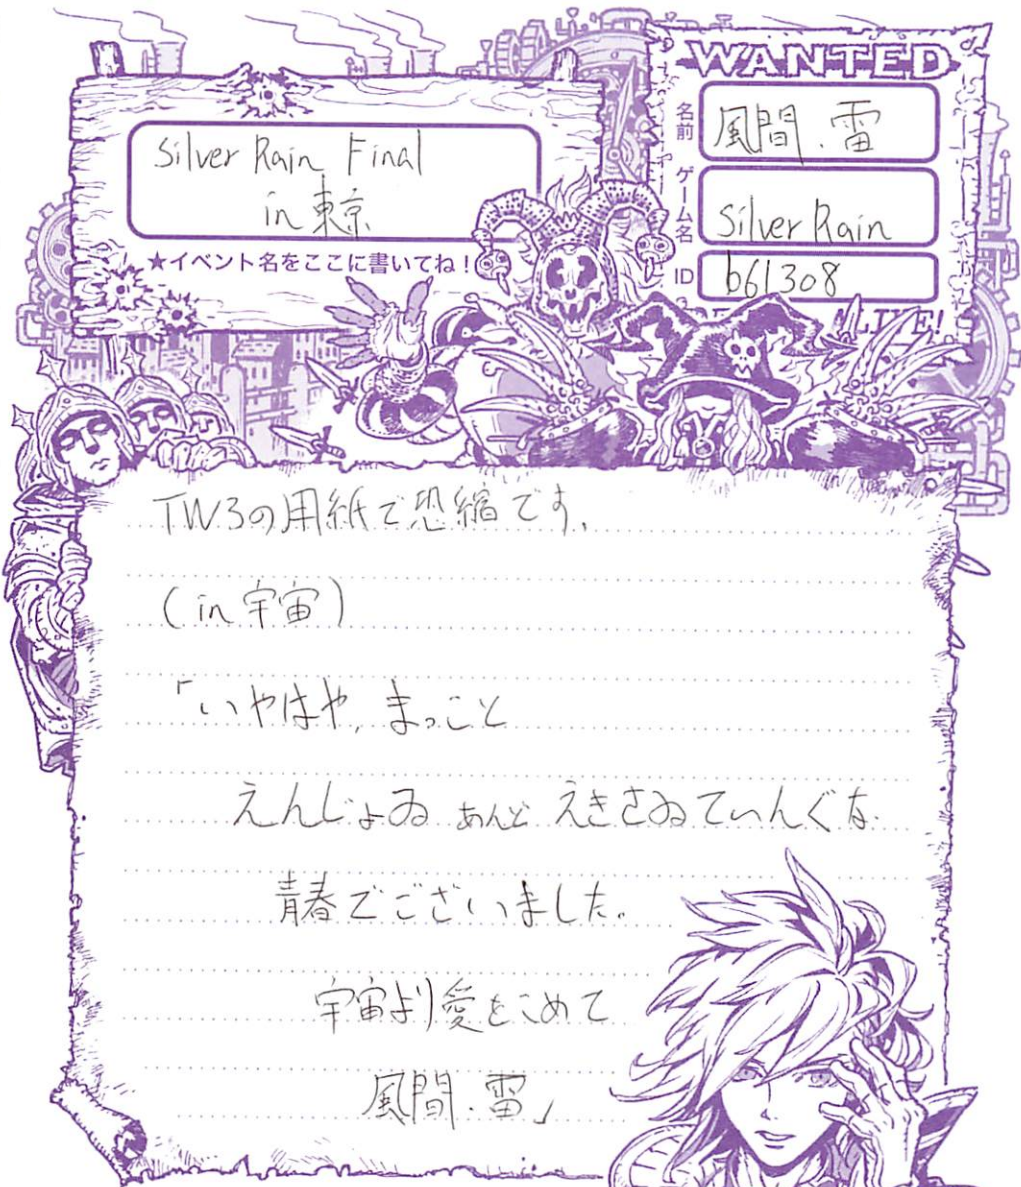 Silver Rain Final
in 東京
★イベント名をここに書いてね!
WANTED
名前
風間.雷
ゲーム名
Silver Rain
ID
b61308
ALIVE!
TW3の用紙で恐縮です。
(in 宇宙)
「いやはや、まっこと
えんじょゐ あんど えきさゐてぃんぐな
青春でございました。
宇宙より愛をこめて
風間.雷」